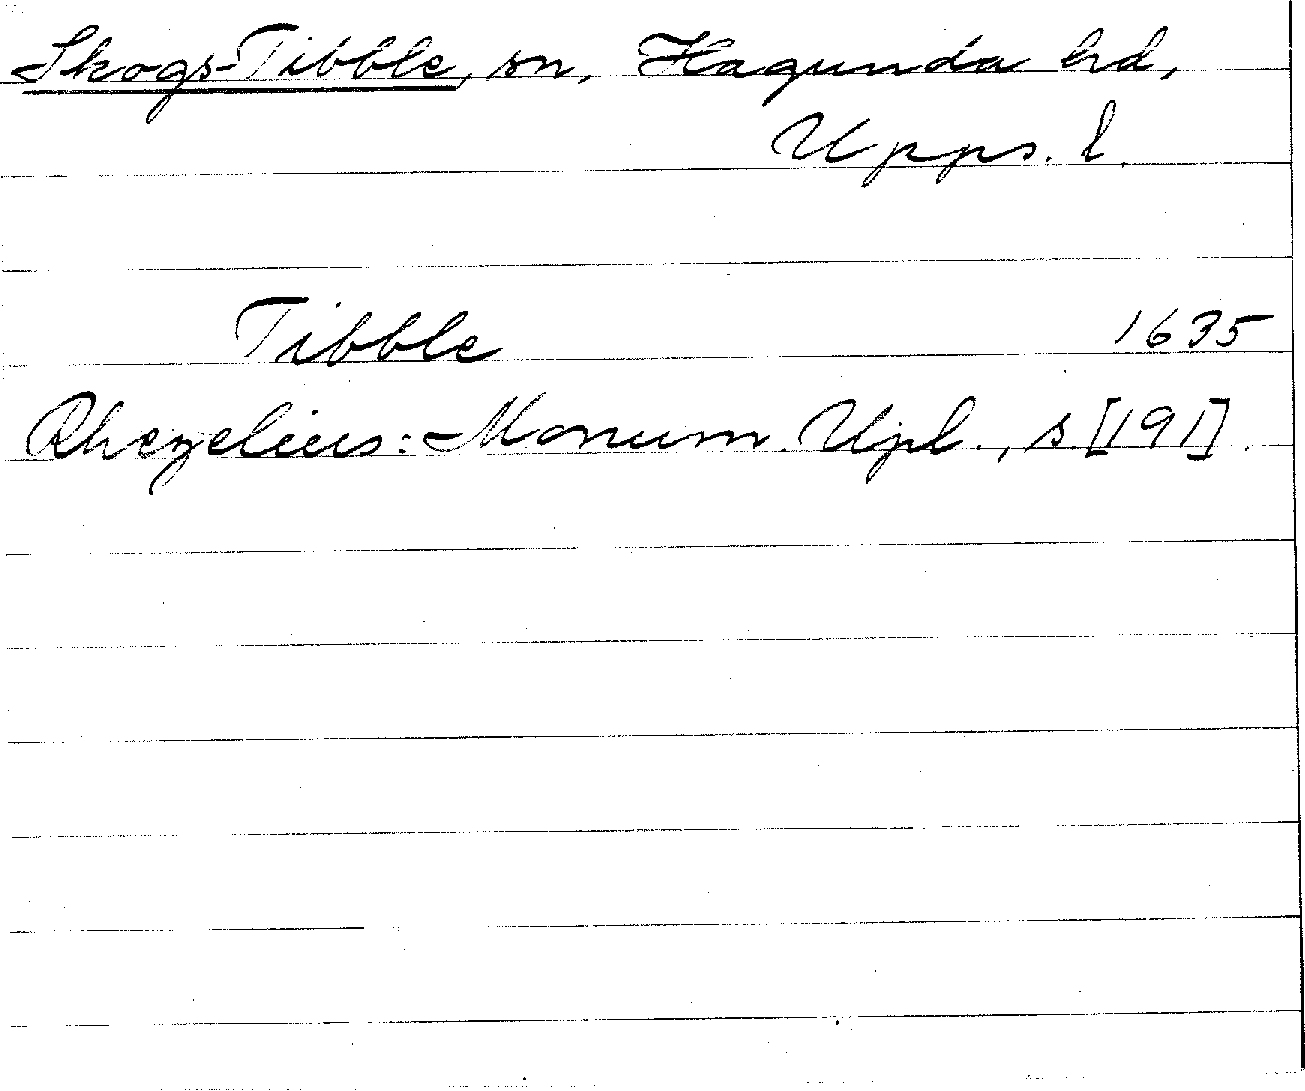 Skogs-Tibble, sn, Hagunda hrd,
Upps. l.
Tibble 1635
Rhezelius: Monum. Upl., s [191].